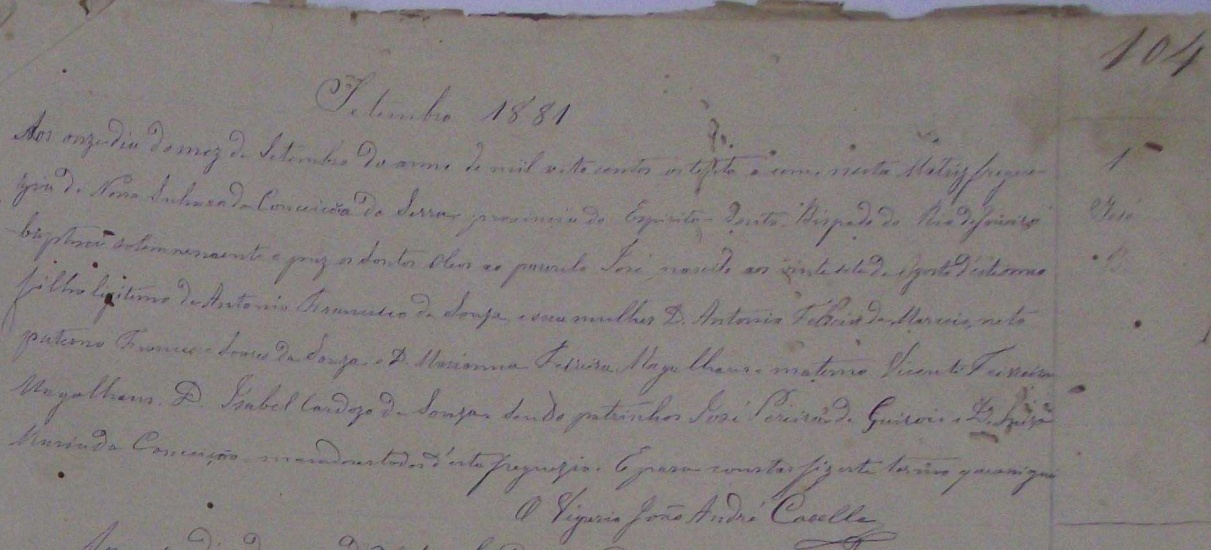 104
Setembro 1881
Aos onze dia do mez de Setembro do anno de mil oito centos oitenta e um, nesta Matriz fregue-
zia de Nossa Senhora da Conceição da Serra, provincia do Espirito Santo, Bispado do Rio de Janeiro
baptizei solemnemente e puz os Santos Oleos ao parvulo José nascido aos vinte sete de Agosto d'este anno
filho legitimo de Antonio Francisco de Souza e sua mulher D. Antonia neto
paterno Francisco Soares de Souza e D. Marianna Magalhaens materno Vicente Ferreira
Magalhaens D. Isabel Cardozo de Souza. Sendo padrinhos José Pereira de e D. Luiza
Maria da Conceição moradores todos d'esta freguezia. E para constar fiz este termo que assigno
O Vigario João André Casella
1
José
B.